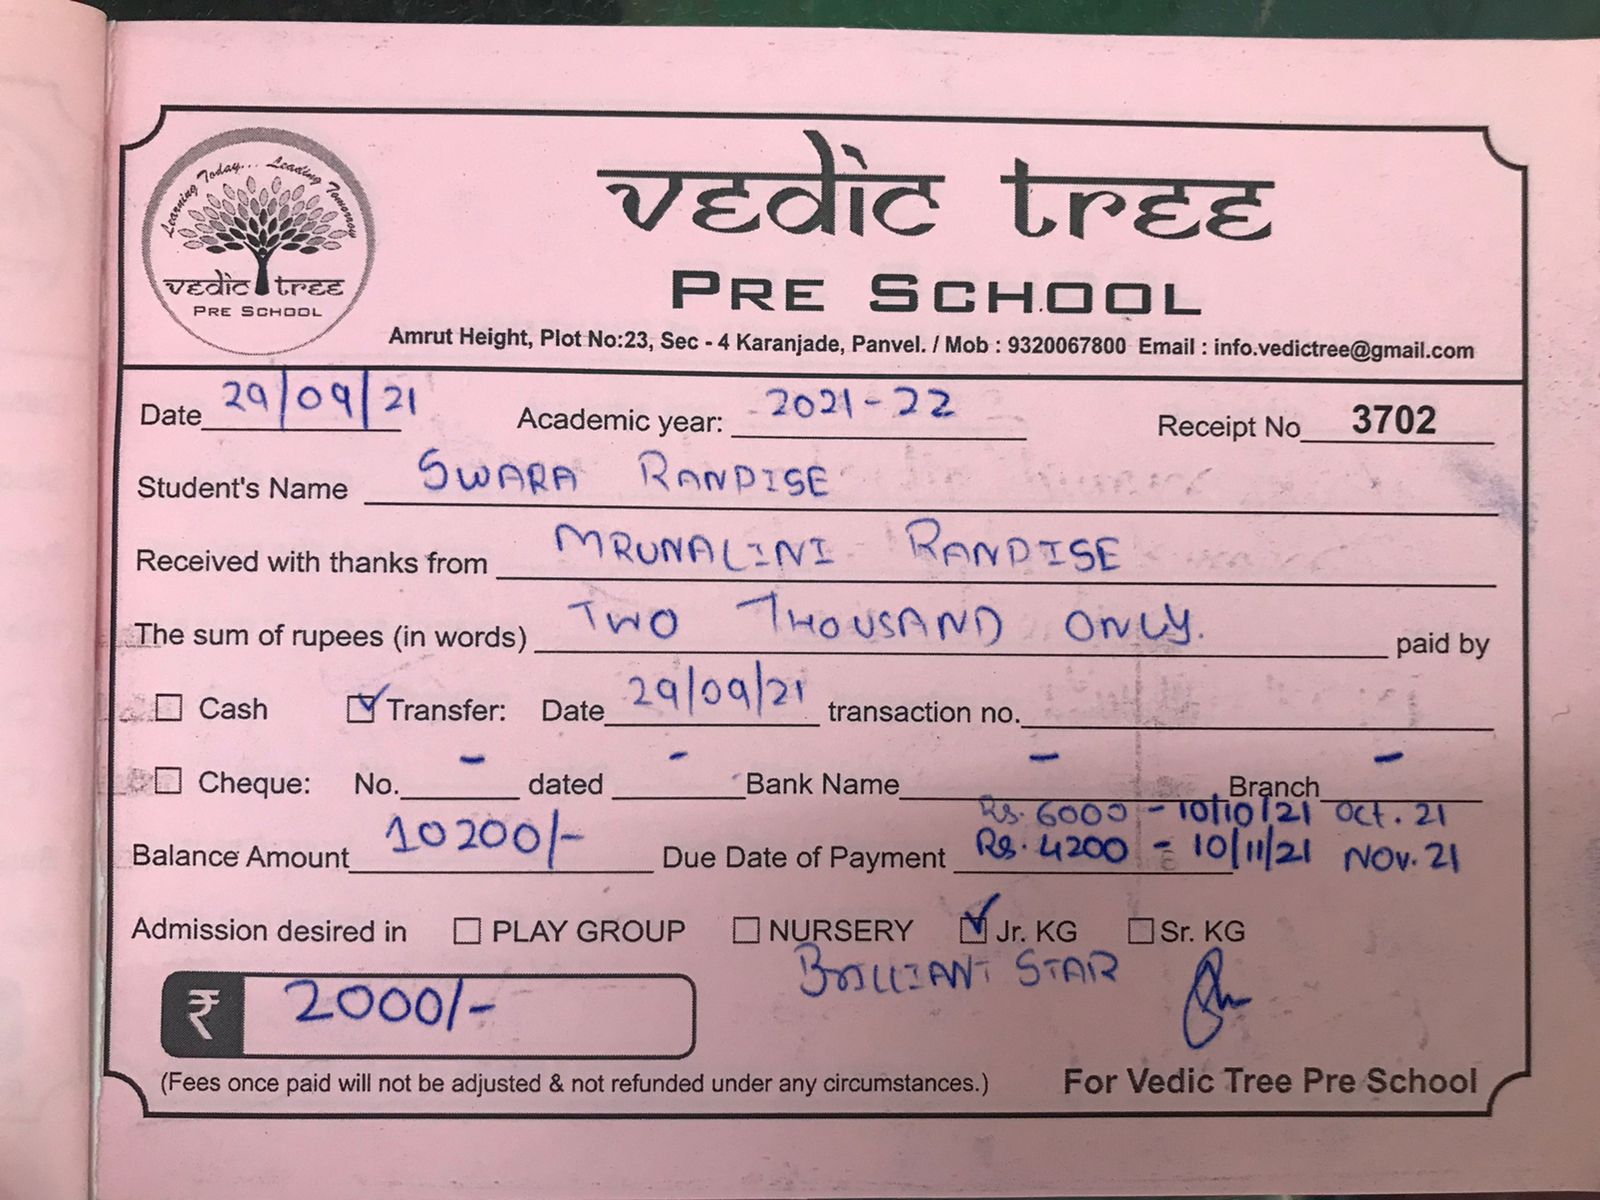 Learning Today... Leading Tomorrow
vedic tree
PRE SCHOOL
vedic tree
PRE SCHOOL
Amrut Height, Plot No:23, Sec - 4 Karanjade, Panvel. / Mob : 9320067800 Email : info.vedictree@gmail.com
Date 29/09/21 Academic year: 2021-22 Receipt No 3702
Student's Name SWARA RANDISE
Received with thanks from MRUNALINI RANDISE
The sum of rupees (in words) TWO THOUSAND ONLY. paid by
Cash Transfer: Date 29/09/21 transaction no.
Cheque: No. - dated - Bank Name - Branch -
Rs. 6000 - 10/10/21 Oct. 21
Balance Amount 10200/- Due Date of Payment Rs. 4200 - 10/11/21 NOV. 21
Admission desired in PLAY GROUP NURSERY Jr. KG Sr. KG
BRILLIANT STAR
₹ 2000/-
(Fees once paid will not be adjusted & not refunded under any circumstances.) For Vedic Tree Pre School